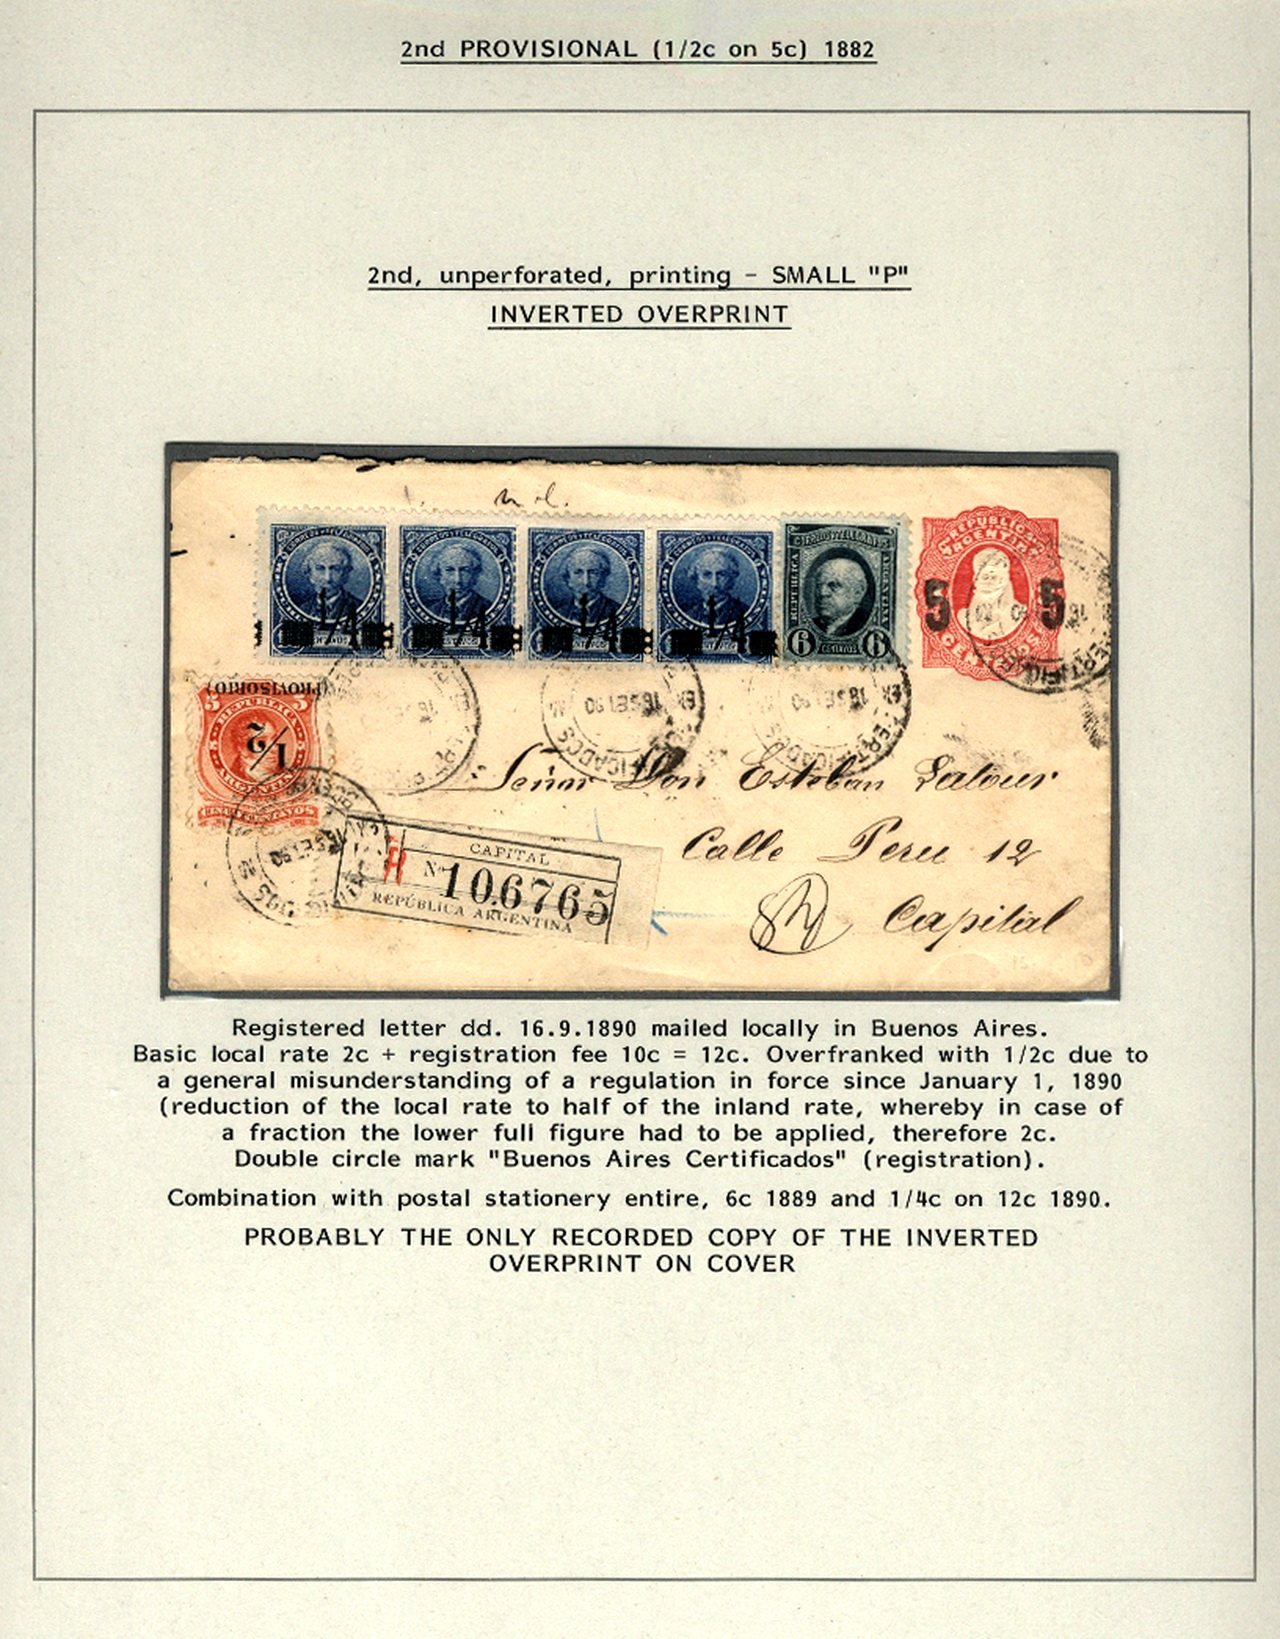 2nd PROVISIONAL (1/2c on 5c) 1882
2nd, unperforated, printing - SMALL "P"
INVERTED OVERPRINT
n.l.
1/4 1/4 1/4 1/4
REPUBLICA ARGENTINA
6 CENTAVOS 6
REPUBLICA ARGENTINA
5 5
CENTAVOS
(PROVISORIO)
5 5
REPUBLICA
1/2
ARGENTINA
16 SET 90
16 SET 90
CERTIFICADOS
Señor Don Esteban Latour
Calle Peru 12
Capital
R
CAPITAL
R No 106765
REPÚBLICA ARGENTINA
Registered letter dd. 16.9.1890 mailed locally in Buenos Aires.
Basic local rate 2c + registration fee 10c = 12c. Overfranked with 1/2c due to
a general misunderstanding of a regulation in force since January 1, 1890
(reduction of the local rate to half of the inland rate, whereby in case of
a fraction the lower full figure had to be applied, therefore 2c.
Double circle mark "Buenos Aires Certificados" (registration).
Combination with postal stationery entire, 6c 1889 and 1/4c on 12c 1890.
PROBABLY THE ONLY RECORDED COPY OF THE INVERTED
OVERPRINT ON COVER